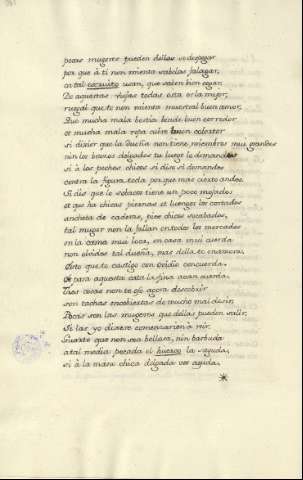 pocas mugeres pueden dellas se despagar
por que á ti non mienta sabelas falagar,
ca tal escanto usan, que saben bien cegar.
De aquestas viejas todas esta es la mejor,
ruegal que te non mienta muestral buen amor,
Que mucha mala bestia vende buen corredor
et mucha mala ropa cubre buen cobertor
si dixier que la dueña non tiene miembros muy grandes
nin los brazos delgados tu luego le demandes
si á los pechos chicos si dise si demandes
contra la figura toda por que mas cierto andes.
Si dis que los sobacos tiene un poco mojados
et que ha chicas piernas et luengos los costados
ancheta de caderas, pies chicos socabados,
tal muger non la fallan en todos los mercados
en la cama muy loca, en casa muy cuerda
non olvides tal dueña, mas della te enamora.
Esto que te castigo con Ovidio concuerda
Et para aquesta cata la fina avancuerda.
Tres cosas non te oso agora descobrir
son tachas encobiertas de mucho mal desir
Pocas son las mugeres que dellas pueden salir.
Si las yo dixiere comenzarien á reir.
Guarte que non sea bellosa, nin barbuda
atal media pecada el huerco la saguda,
si á la mano chica delgada voz aguda,
*